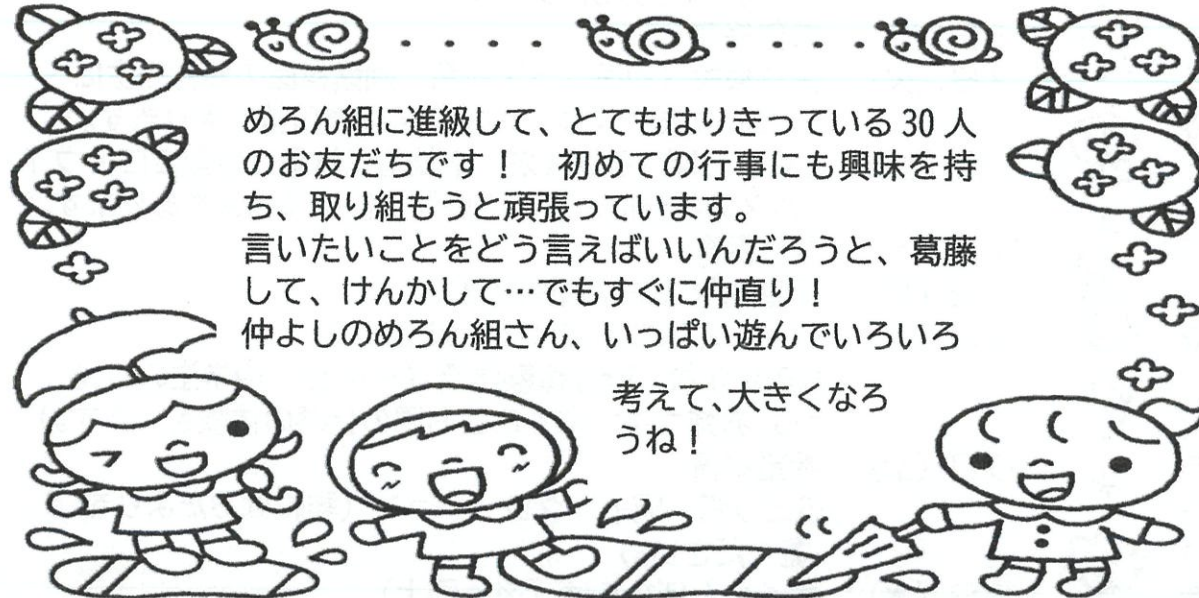 めろん組に進級して、とてもはりきっている 30 人
のお友だちです！　初めての行事にも興味を持
ち、取り組もうと頑張っています。
言いたいことをどう言えばいいんだろうと、葛藤
して、けんかして…でもすぐに仲直り！
仲よしのめろん組さん、いっぱい遊んでいろいろ
考えて、大きくなろ
うね！